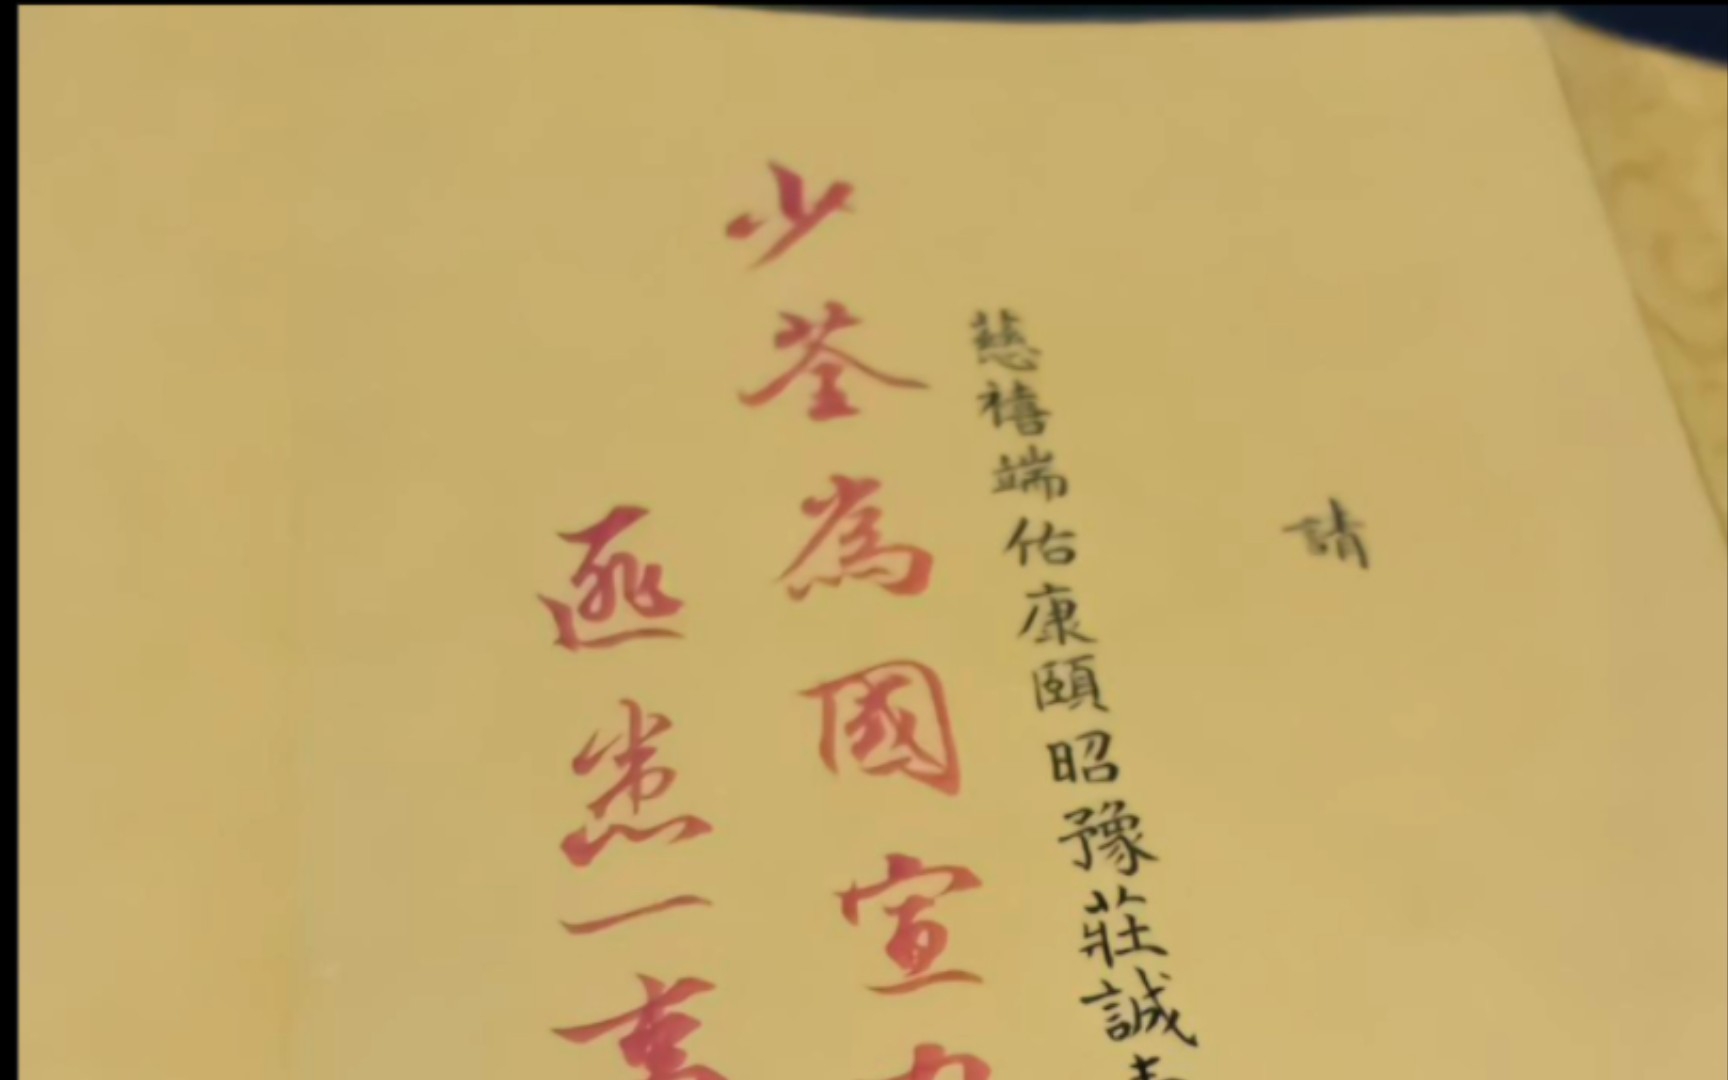 請
慈禧端佑康頤昭豫莊誠
少荃為國宣
一